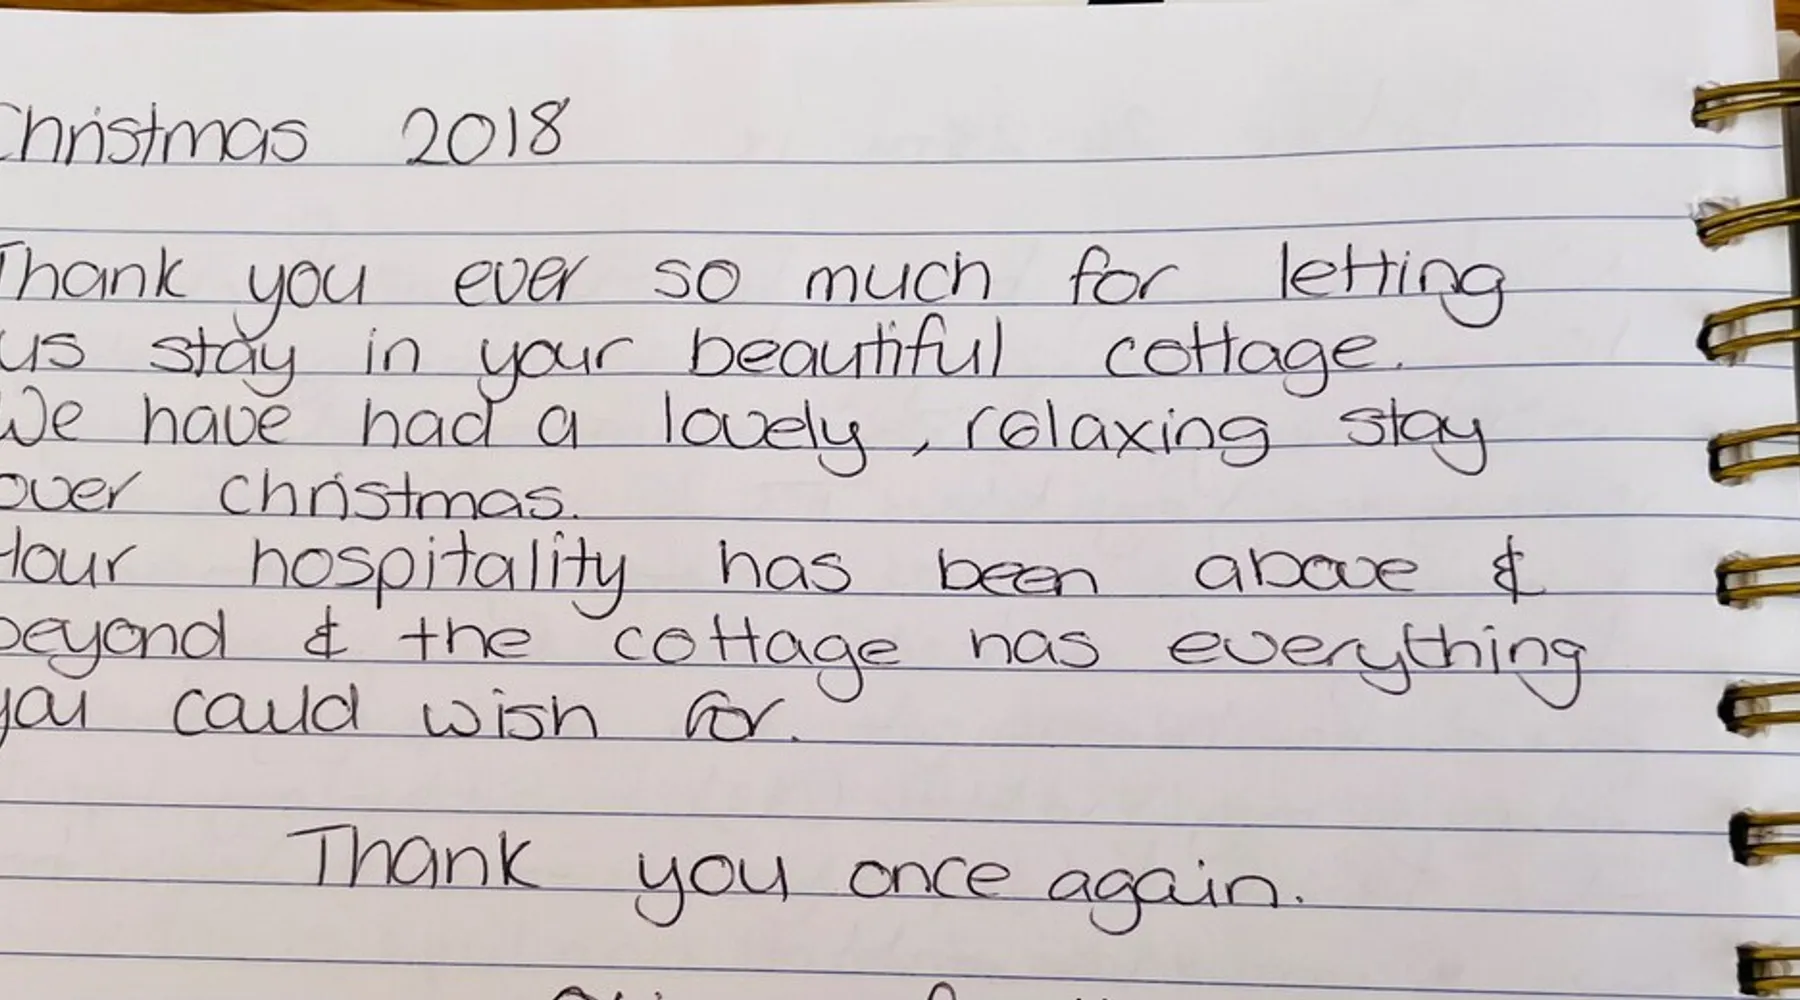 Christmas 2018
Thank you ever so much for letting
us stay in your beautiful cottage.
We have had a lovely, relaxing stay
over christmas.
Your hospitality has been above &
beyond & the cottage has everything
you could wish for.
Thank you once again.